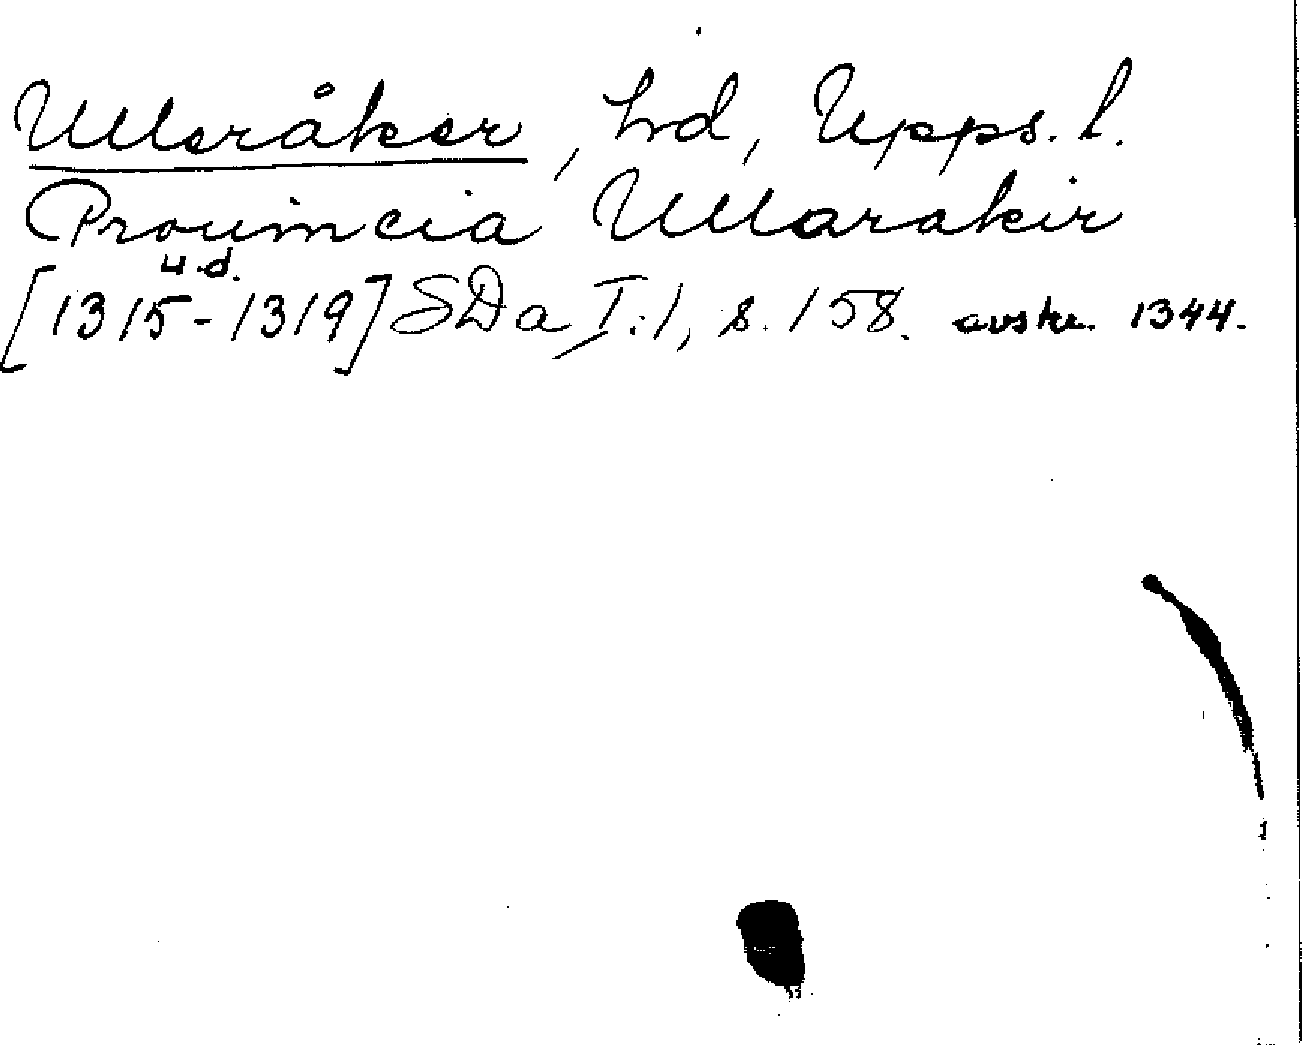 Ulleråker, hd, Upps. l.
Prouincia Ullarakir
u.d.
[1315-1319] SDa I:1, s. 158. avskr. 1344.